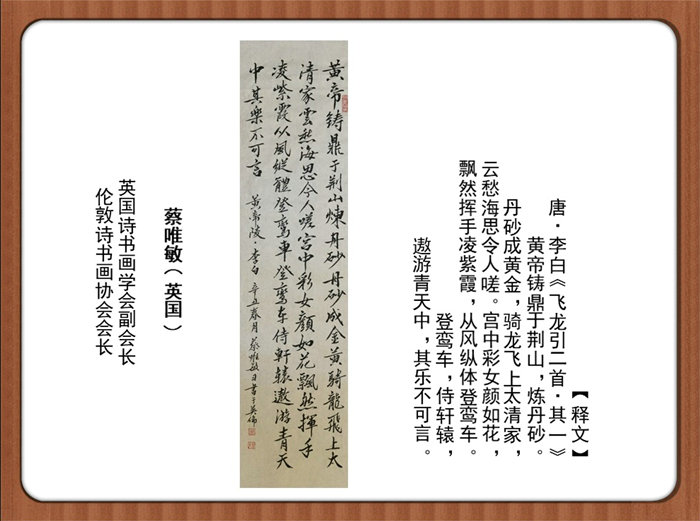 【释文】
唐·李白《飞龙引二首·其一》
黄帝铸鼎于荆山，炼丹砂。
丹砂成黄金，骑龙飞上太清家，
云愁海思令人嗟。宫中彩女颜如花，
飘然挥手凌紫霞，从风纵体登鸾车。
登鸾车，侍轩辕，
遨游青天中，其乐不可言。
黄帝铸鼎于荆山煉丹砂丹砂成金黄騎龍飛上太
清家雲愁海思令人嗟宫中彩女顔如花飄然揮手
凌紫霞从風縱體登鸾車登鸾车侍軒轅遨游青天
中其樂不可言 黄帝陵·李白 辛丑春月 蔡唯敏 書于英倫
蔡唯敏（英国）
英国诗书画学会副会长
伦敦诗书画协会会长